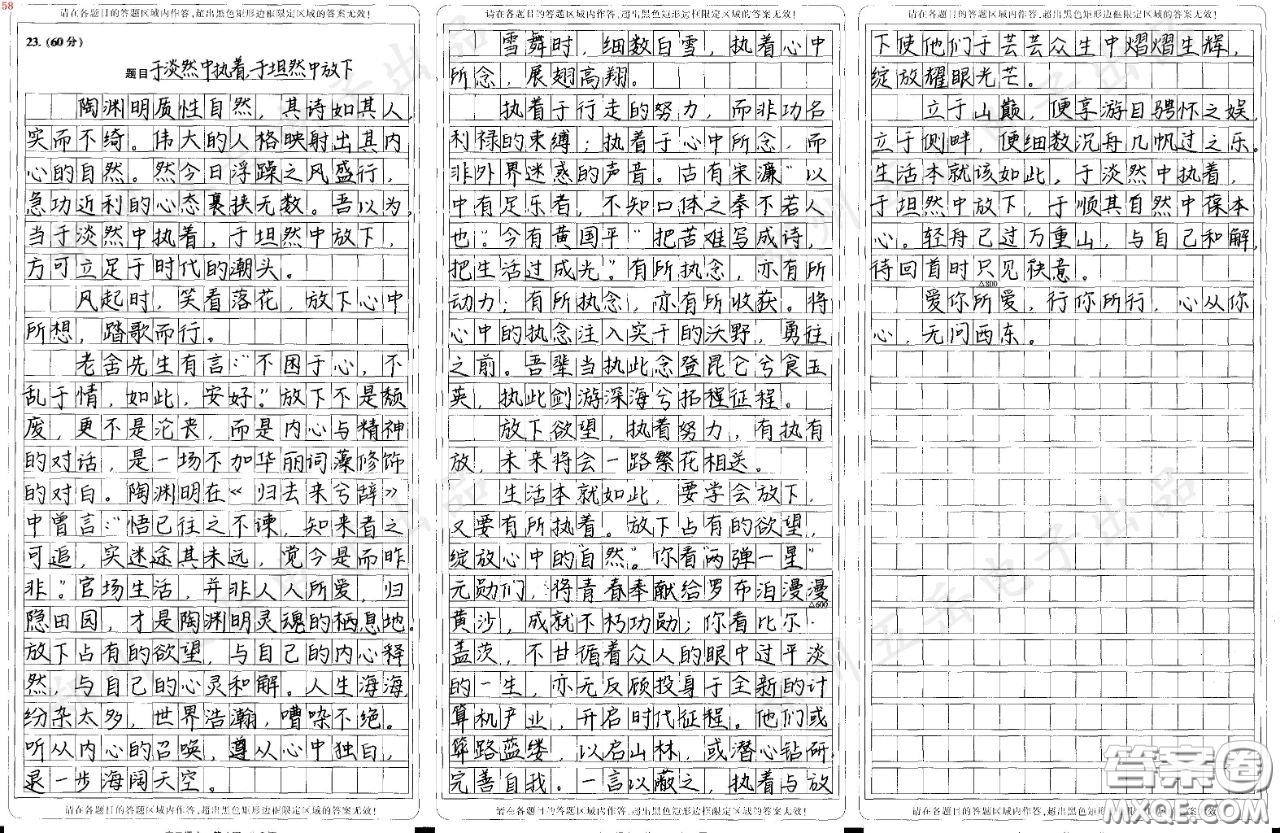 58
请在各题目的答题区域内作答,超出黑色矩形边框限定区域的答案无效!
23.(60分)
题目 于淡然中执着,于坦然中放下
陶渊明质性自然,其诗如其人,
实而不绮。伟大的人格映射出其内
心的自然。然今日浮躁之风盛行,
急功近利的心态裹挟无数。吾以为,
当于淡然中执着,于坦然中放下,
方可立足于时代的潮头。
风起时,笑看落花,放下心中
所想,踏歌而行。
老舍先生有言:“不困于心,不
乱于情,如此,安好。”放下不是颓
废,更不是沦丧,而是内心与精神
的对话,是一场不加华丽词藻修饰
的对白。陶渊明在《归去来兮辞》
中曾言:“悟已往之不谏,知来者之
可追,实迷途其未远,觉今是而昨
非。”官场生活,并非人人所爱,归
隐田园,才是陶渊明灵魂的栖息地。
放下占有的欲望,与自己的内心释
然,与自己的心灵和解。人生海海,
纷杂太多,世界浩瀚,嘈杂不绝。
听从内心的召唤,遵从心中独白,
退一步海阔天空。
请在各题目的答题区域内作答,超出黑色矩形边框限定区域的答案无效!
请在各题目的答题区域内作答,超出黑色矩形边框限定区域的答案无效!
雪舞时,细数白雪,执着心中
所念,展翅高翔。
执着于行走的努力,而非功名
利禄的束缚;执着于心中所念,而
非外界迷惑的声音。古有宋濂“以
中有足乐者,不知口体之奉不若人
也”。今有黄国平“把苦难写成诗,
把生活过成光”。有所执念,亦有所
动力;有所执念,亦有所收获。将
心中的执念注入实干的沃野,勇往
之前。吾辈当执此念登昆仑兮食玉
英,执此剑游深海兮拓程征程。
放下欲望,执着努力,有执有
放,未来将会一路繁花相送。
生活本就如此,要学会放下,
又要有所执着。放下占有的欲望,
绽放心中的自然。你看“两弹一星”
元勋们,将青春奉献给罗布泊漫漫
△600
黄沙,成就不朽功勋;你看比尔·
盖茨,不甘循着众人的眼中过平淡
的一生,亦无反顾投身于全新的计
算机产业,开启时代征程。他们或
筚路蓝缕,以启山林,或潜心钻研,
完善自我。一言以蔽之,执着与放
请在各题目的答题区域内作答,超出黑色矩形边框限定区域的答案无效!
请在各题目的答题区域内作答,超出黑色矩形边框限定区域的答案无效!
下使他们于芸芸众生中熠熠生辉,
绽放耀眼光芒。
立于山巅,便享游目骋怀之娱,
立于侧畔,便细数沉舟几帆过之乐。
生活本就该如此,于淡然中执着,
于坦然中放下,于顺其自然中葆本
心。轻舟已过万重山,与自己和解,
待回首时只见秋意。
△800
爱你所爱,行你所行,心从你
心,无问西东。
请在各题目的答题区域内作答,超出黑色矩形边框限定区域的答案无效!
答案圈
MXQE.COM